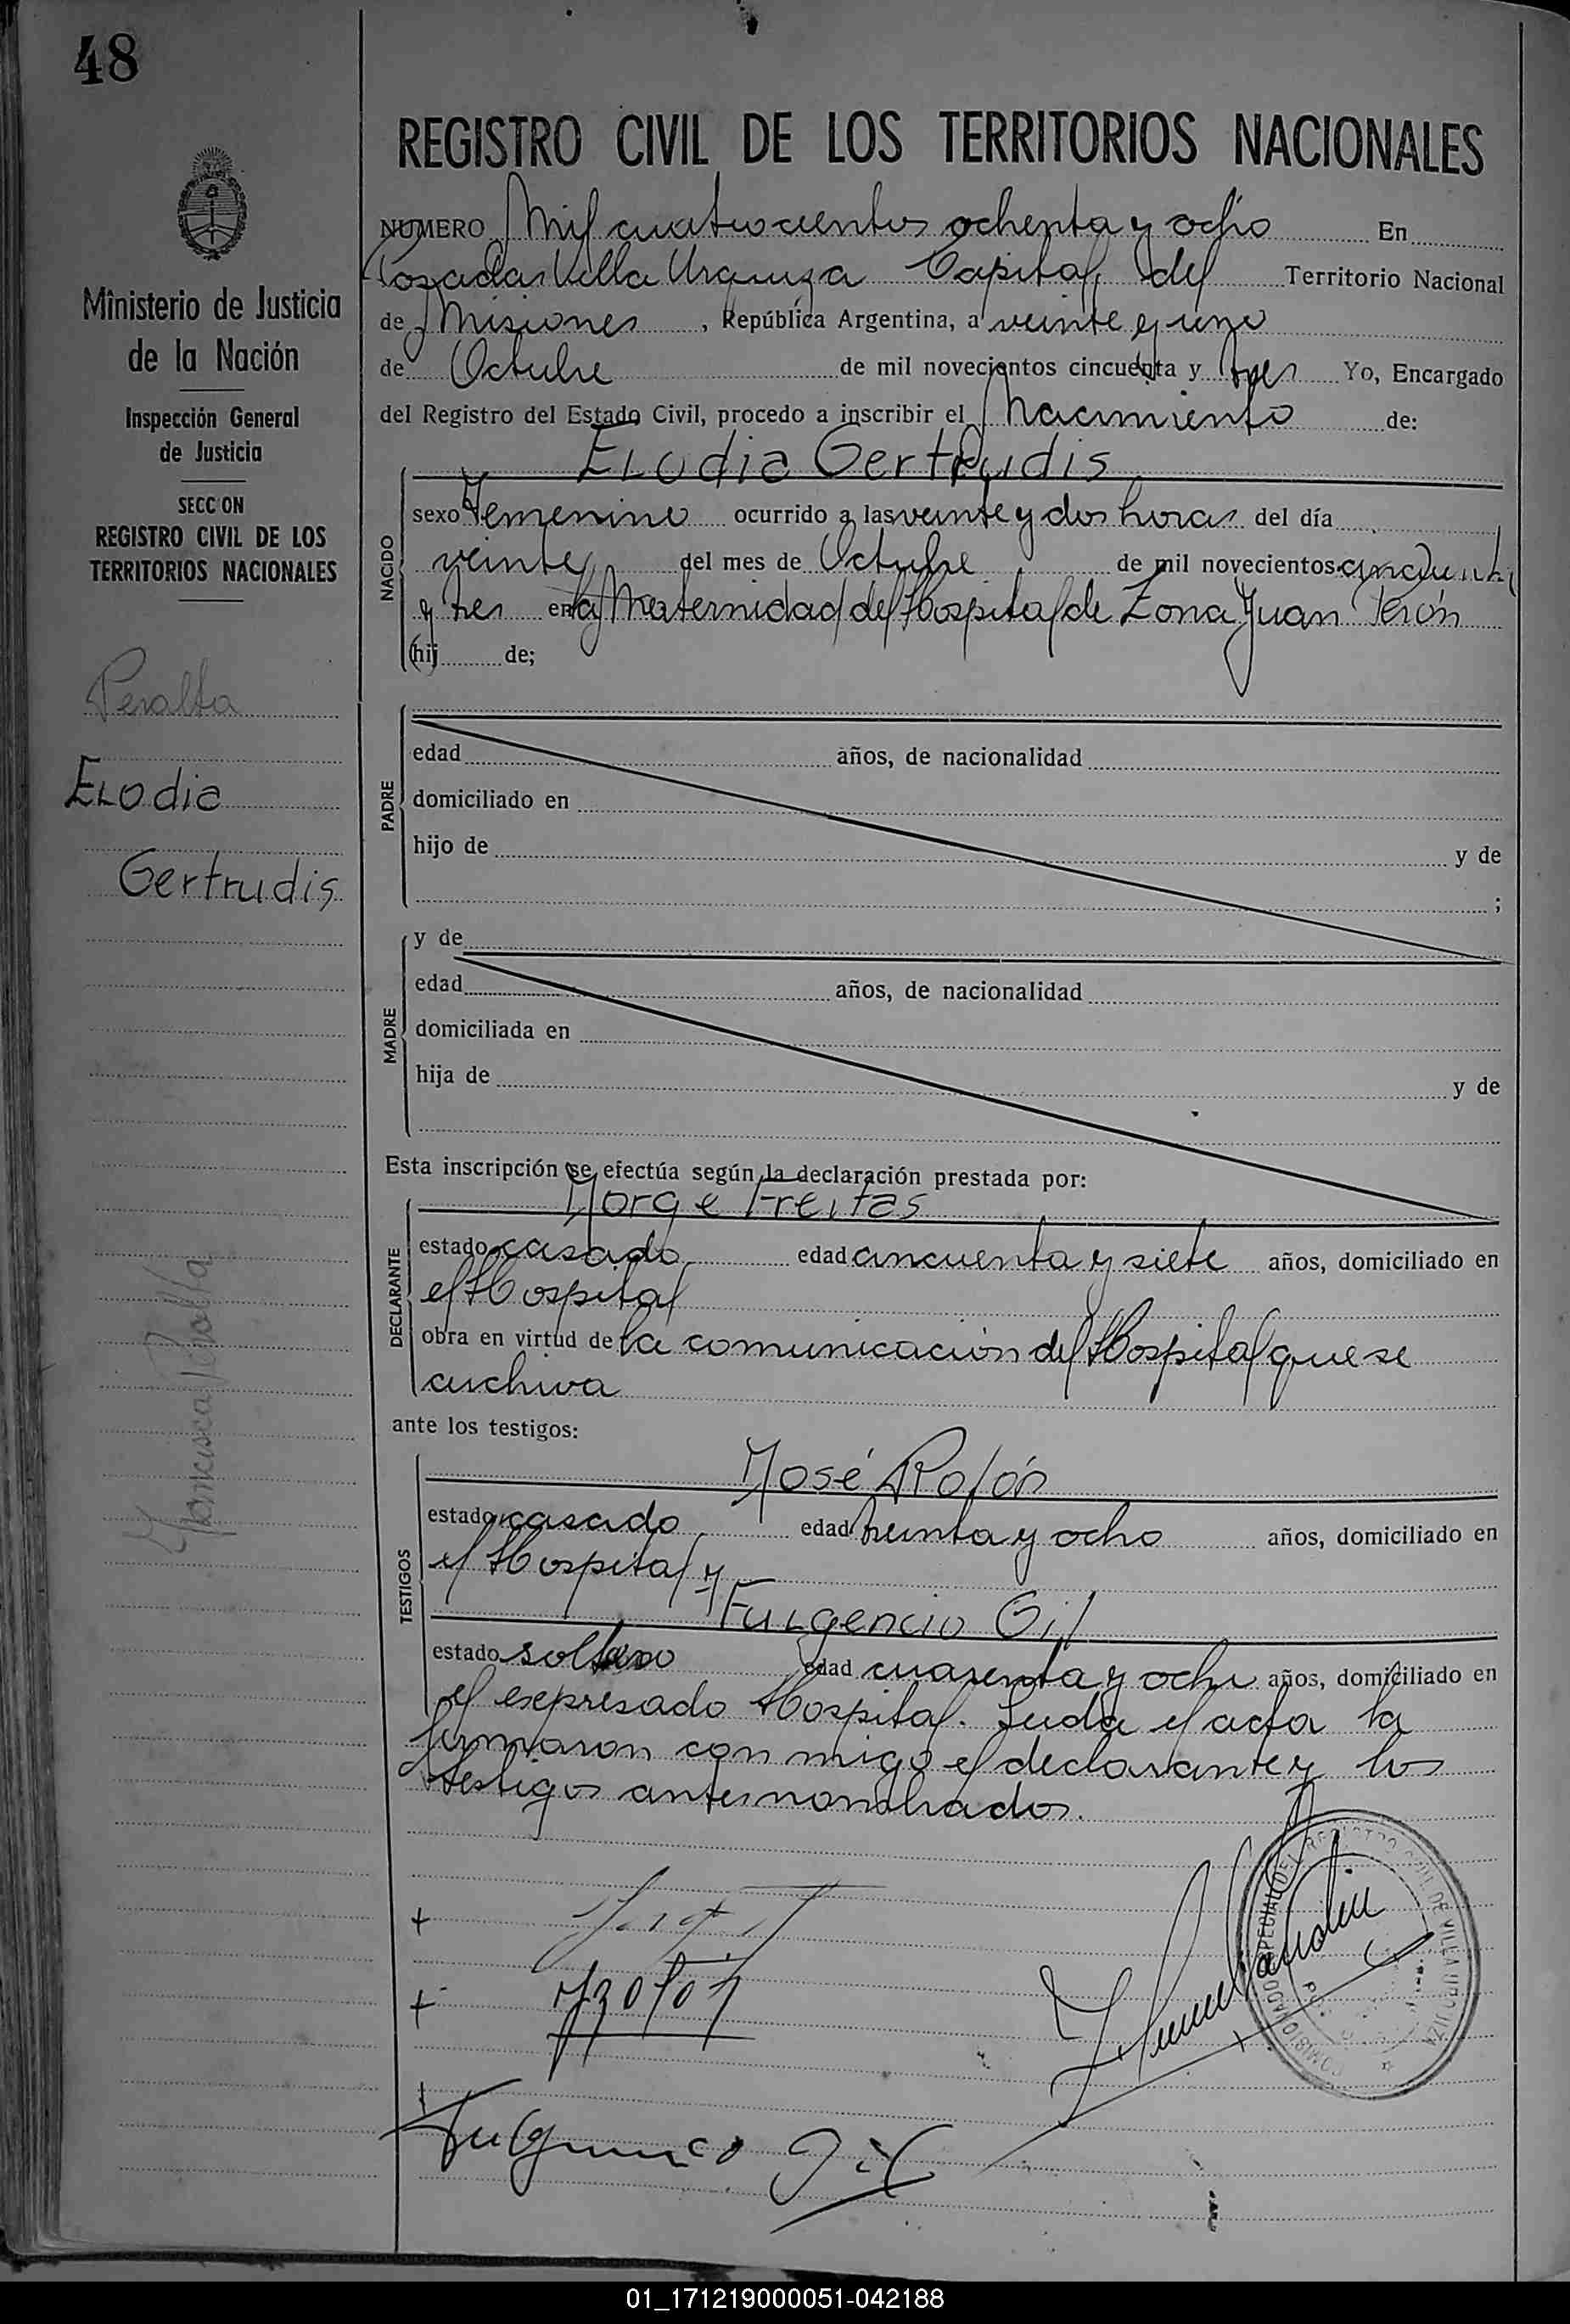 48
Ministerio de Justicia
de la Nación
Inspección General
de Justicia
SECC ON
REGISTRO CIVIL DE LOS
TERRITORIOS NACIONALES
Peralta
Elodia
Gertrudis
Peralta
REGISTRO CIVIL DE LOS TERRITORIOS NACIONALES
NUMERO Mil cuatrocientos ochenta y ocho En
Posadas Villa Urquiza Capital del Territorio Nacional
de Misiones, República Argentina, a veinte y uno
de Octubre de mil novecientos cincuenta y tres Yo, Encargado
del Registro del Estado Civil, procedo a inscribir el Nacimiento de:
Elodia Gertrudis
NACIDO
sexo Femenino ocurrido a las veinte y dos horas del día
veinte del mes de Octubre de mil novecientos cincuenta
y tres en la Maternidad del Hospital de Zona Juan Perón
(hij de;
PADRE
edad años, de nacionalidad
domiciliado en
hijo de y de
;
MADRE
y de
edad años, de nacionalidad
domiciliada en
hija de y de
Esta inscripción se efectúa según la declaración prestada por:
Jorge Freitas
DECLARANTE
estado casado edad cincuenta y siete años, domiciliado en
el Hospital
obra en virtud de la comunicación del Hospital que se
archiva
ante los testigos:
TESTIGOS
José Rolón
estado casado edad treinta y ocho años, domiciliado en
el Hospital y
Fulgencio Gil
estado soltero edad cuarenta y ocho años, domiciliado en
el expresado Hospital. Leida el acta la
firmaron con migo el declarante y los
testigos antes nombrados.
JRolón
Fulgencio Gil
COMISIONADO ESPECIAL DEL REGISTRO CIVIL DE VILLA URQUIZA
01_171219000051-042188